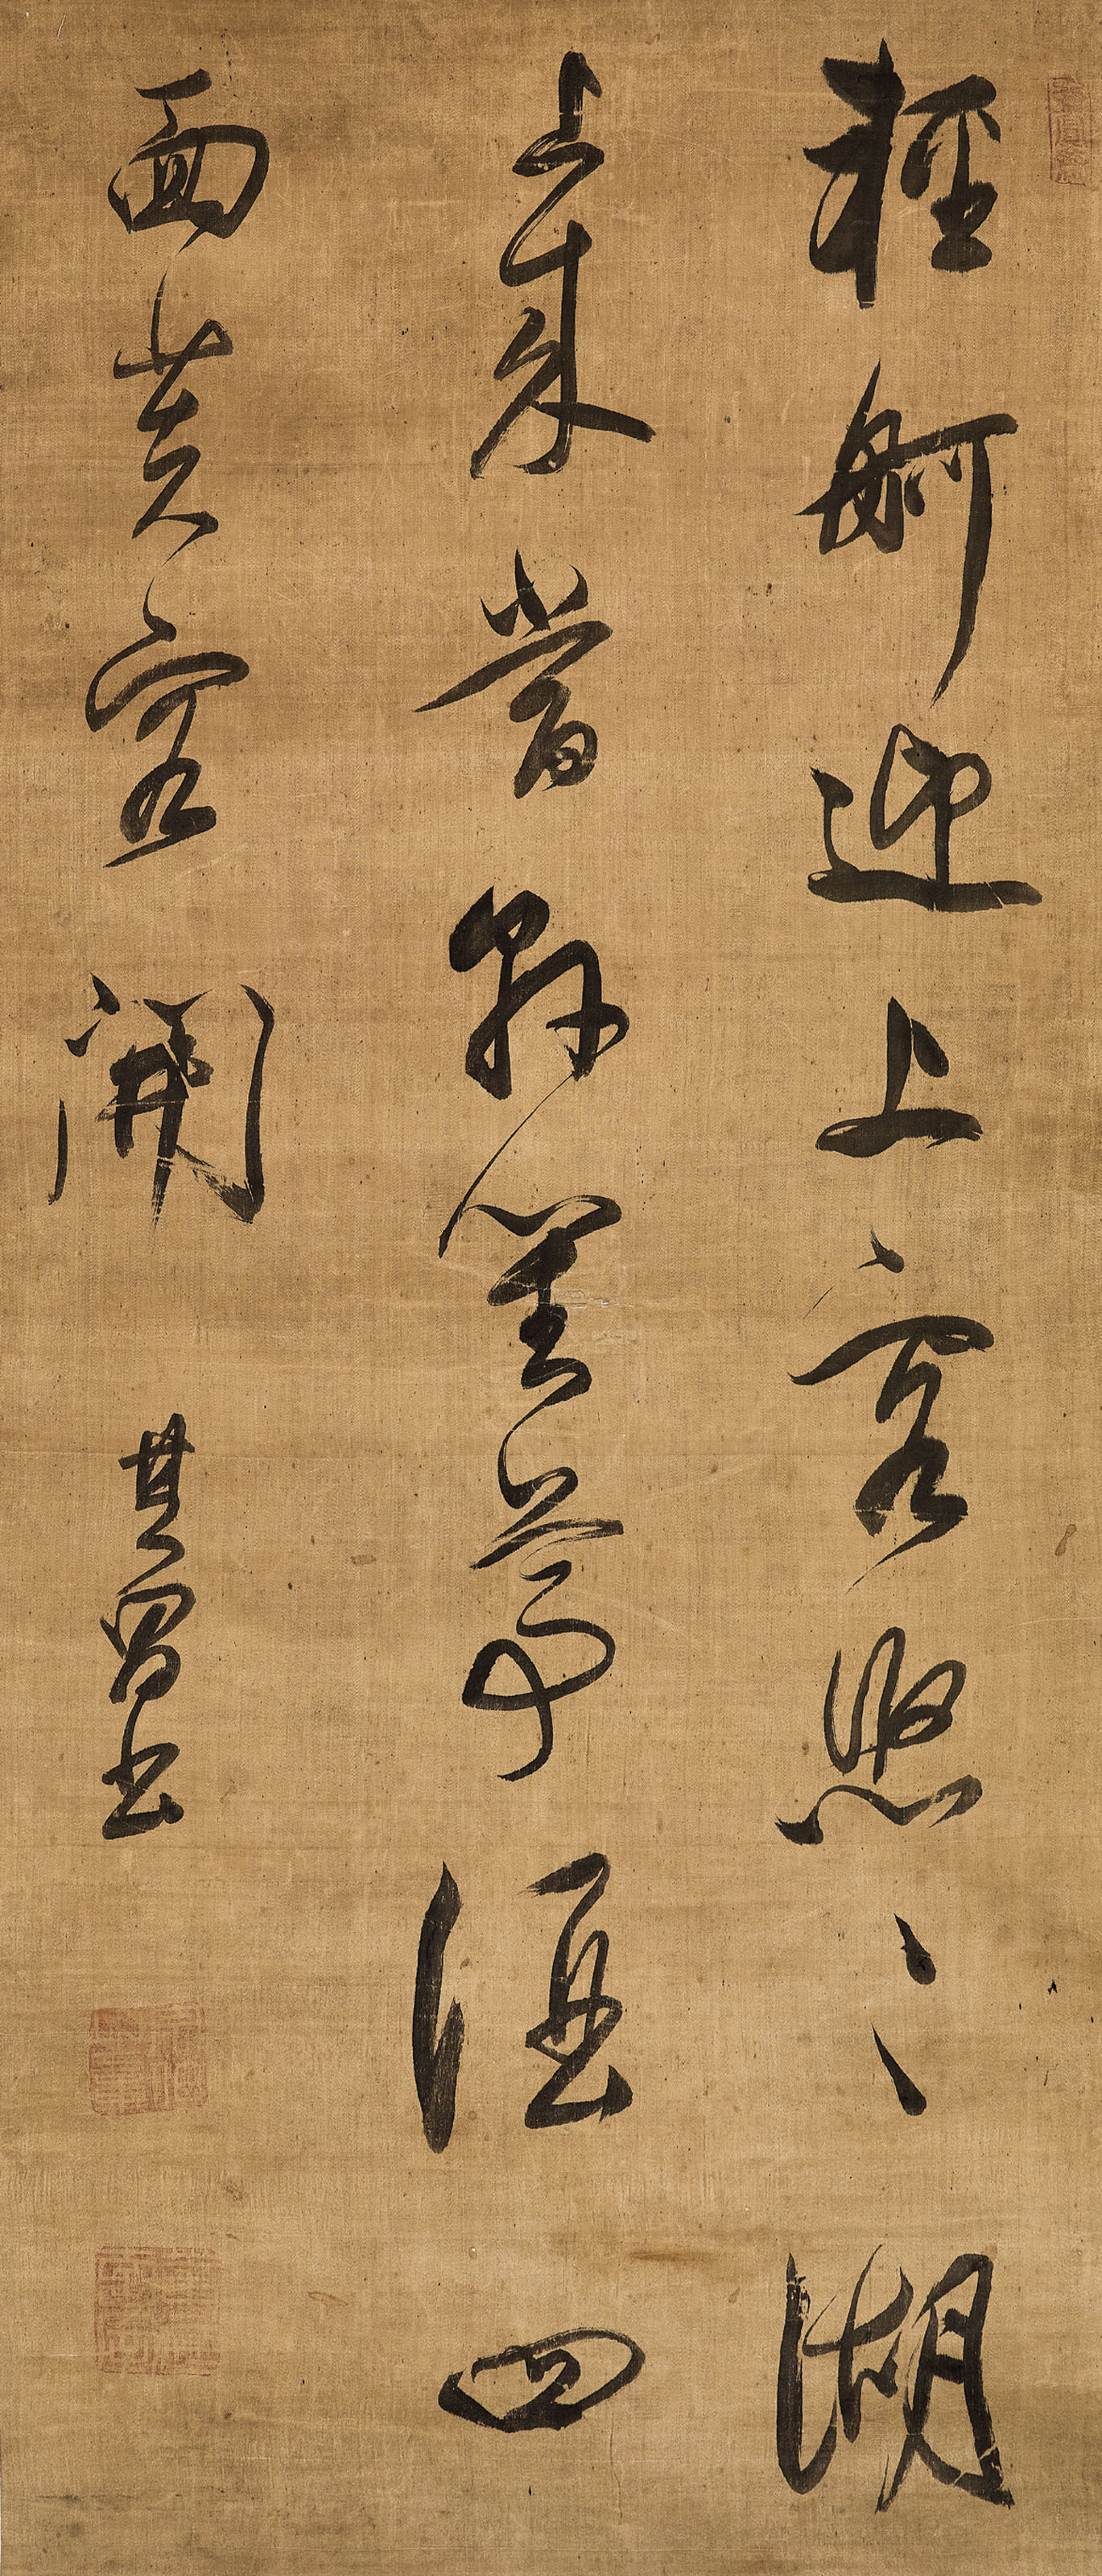 玄賞齋
輕舸迎上客悠〻湖
上來當軒對尊酒四
面芙蓉開
其昌書